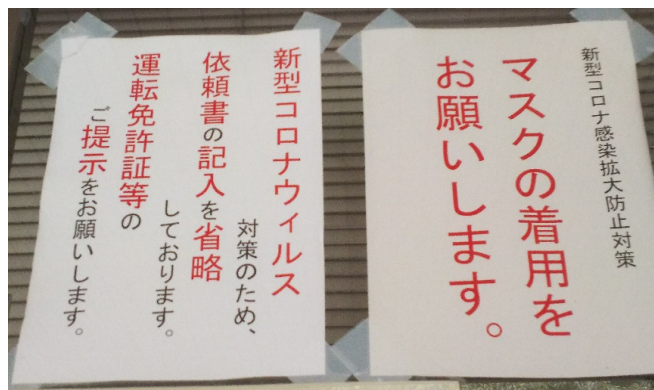 新型コロナ感染拡大防止対策
マスクの着用を
お願いします。
新型コロナウィルス
対策のため、
依頼書の記入を省略
しております。
運転免許証等の
ご提示をお願いします。